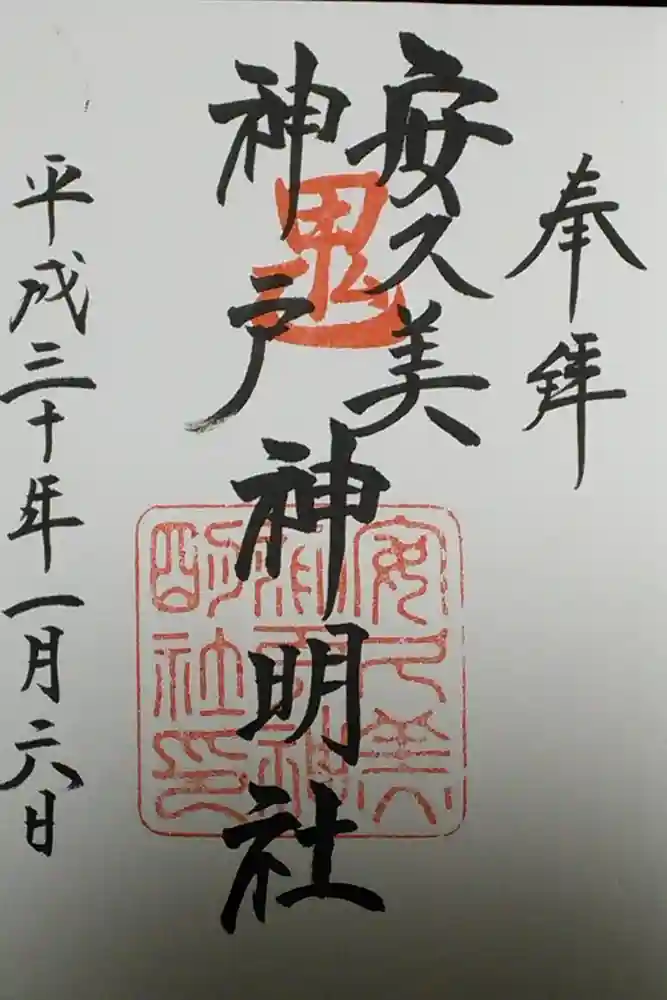 奉拝
安久美
神戸
神明社
平成三十年一月六日
鬼
安久美
神戸神
明社印